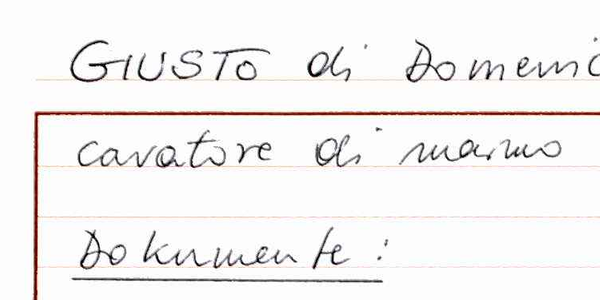 GIUSTO di Domenic
cavatore di marmo
Dokumente: